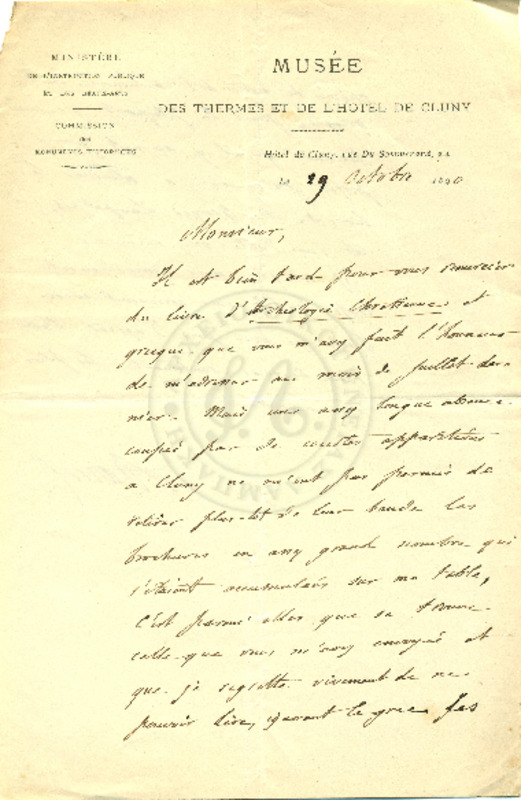 MINISTÈRE
DE L'INSTRUCTION PUBLIQUE
ET DES BEAUX-ARTS
COMMISSION
des
MONUMENTS HISTORIQUES
MUSÉE
DES THERMES ET DE L'HÔTEL DE CLUNY
Hôtel de Cluny, rue Du Sommerard, 24
Le 29 Octobre 1890
Monsieur,
Il est bien tard pour vous remercier
du livre d'Archéologie Chrétienne et
grecque que vous m'avez fait l'honneur
de m'adresser au mois de Juillet der-
nier. Mais une assez longue absence
coupée par de courtes apparitions
a Cluny ne m'ont pas permis de
retirer plus-tôt de leur bande les
brochures en assez grand nombre qui
s'étaient accumulées sur ma table,
C'est parmi elles que se trouve
celle que vous m'avez envoyée et
que je regrette vivement de ne
pouvoir lire, ignorant le grec